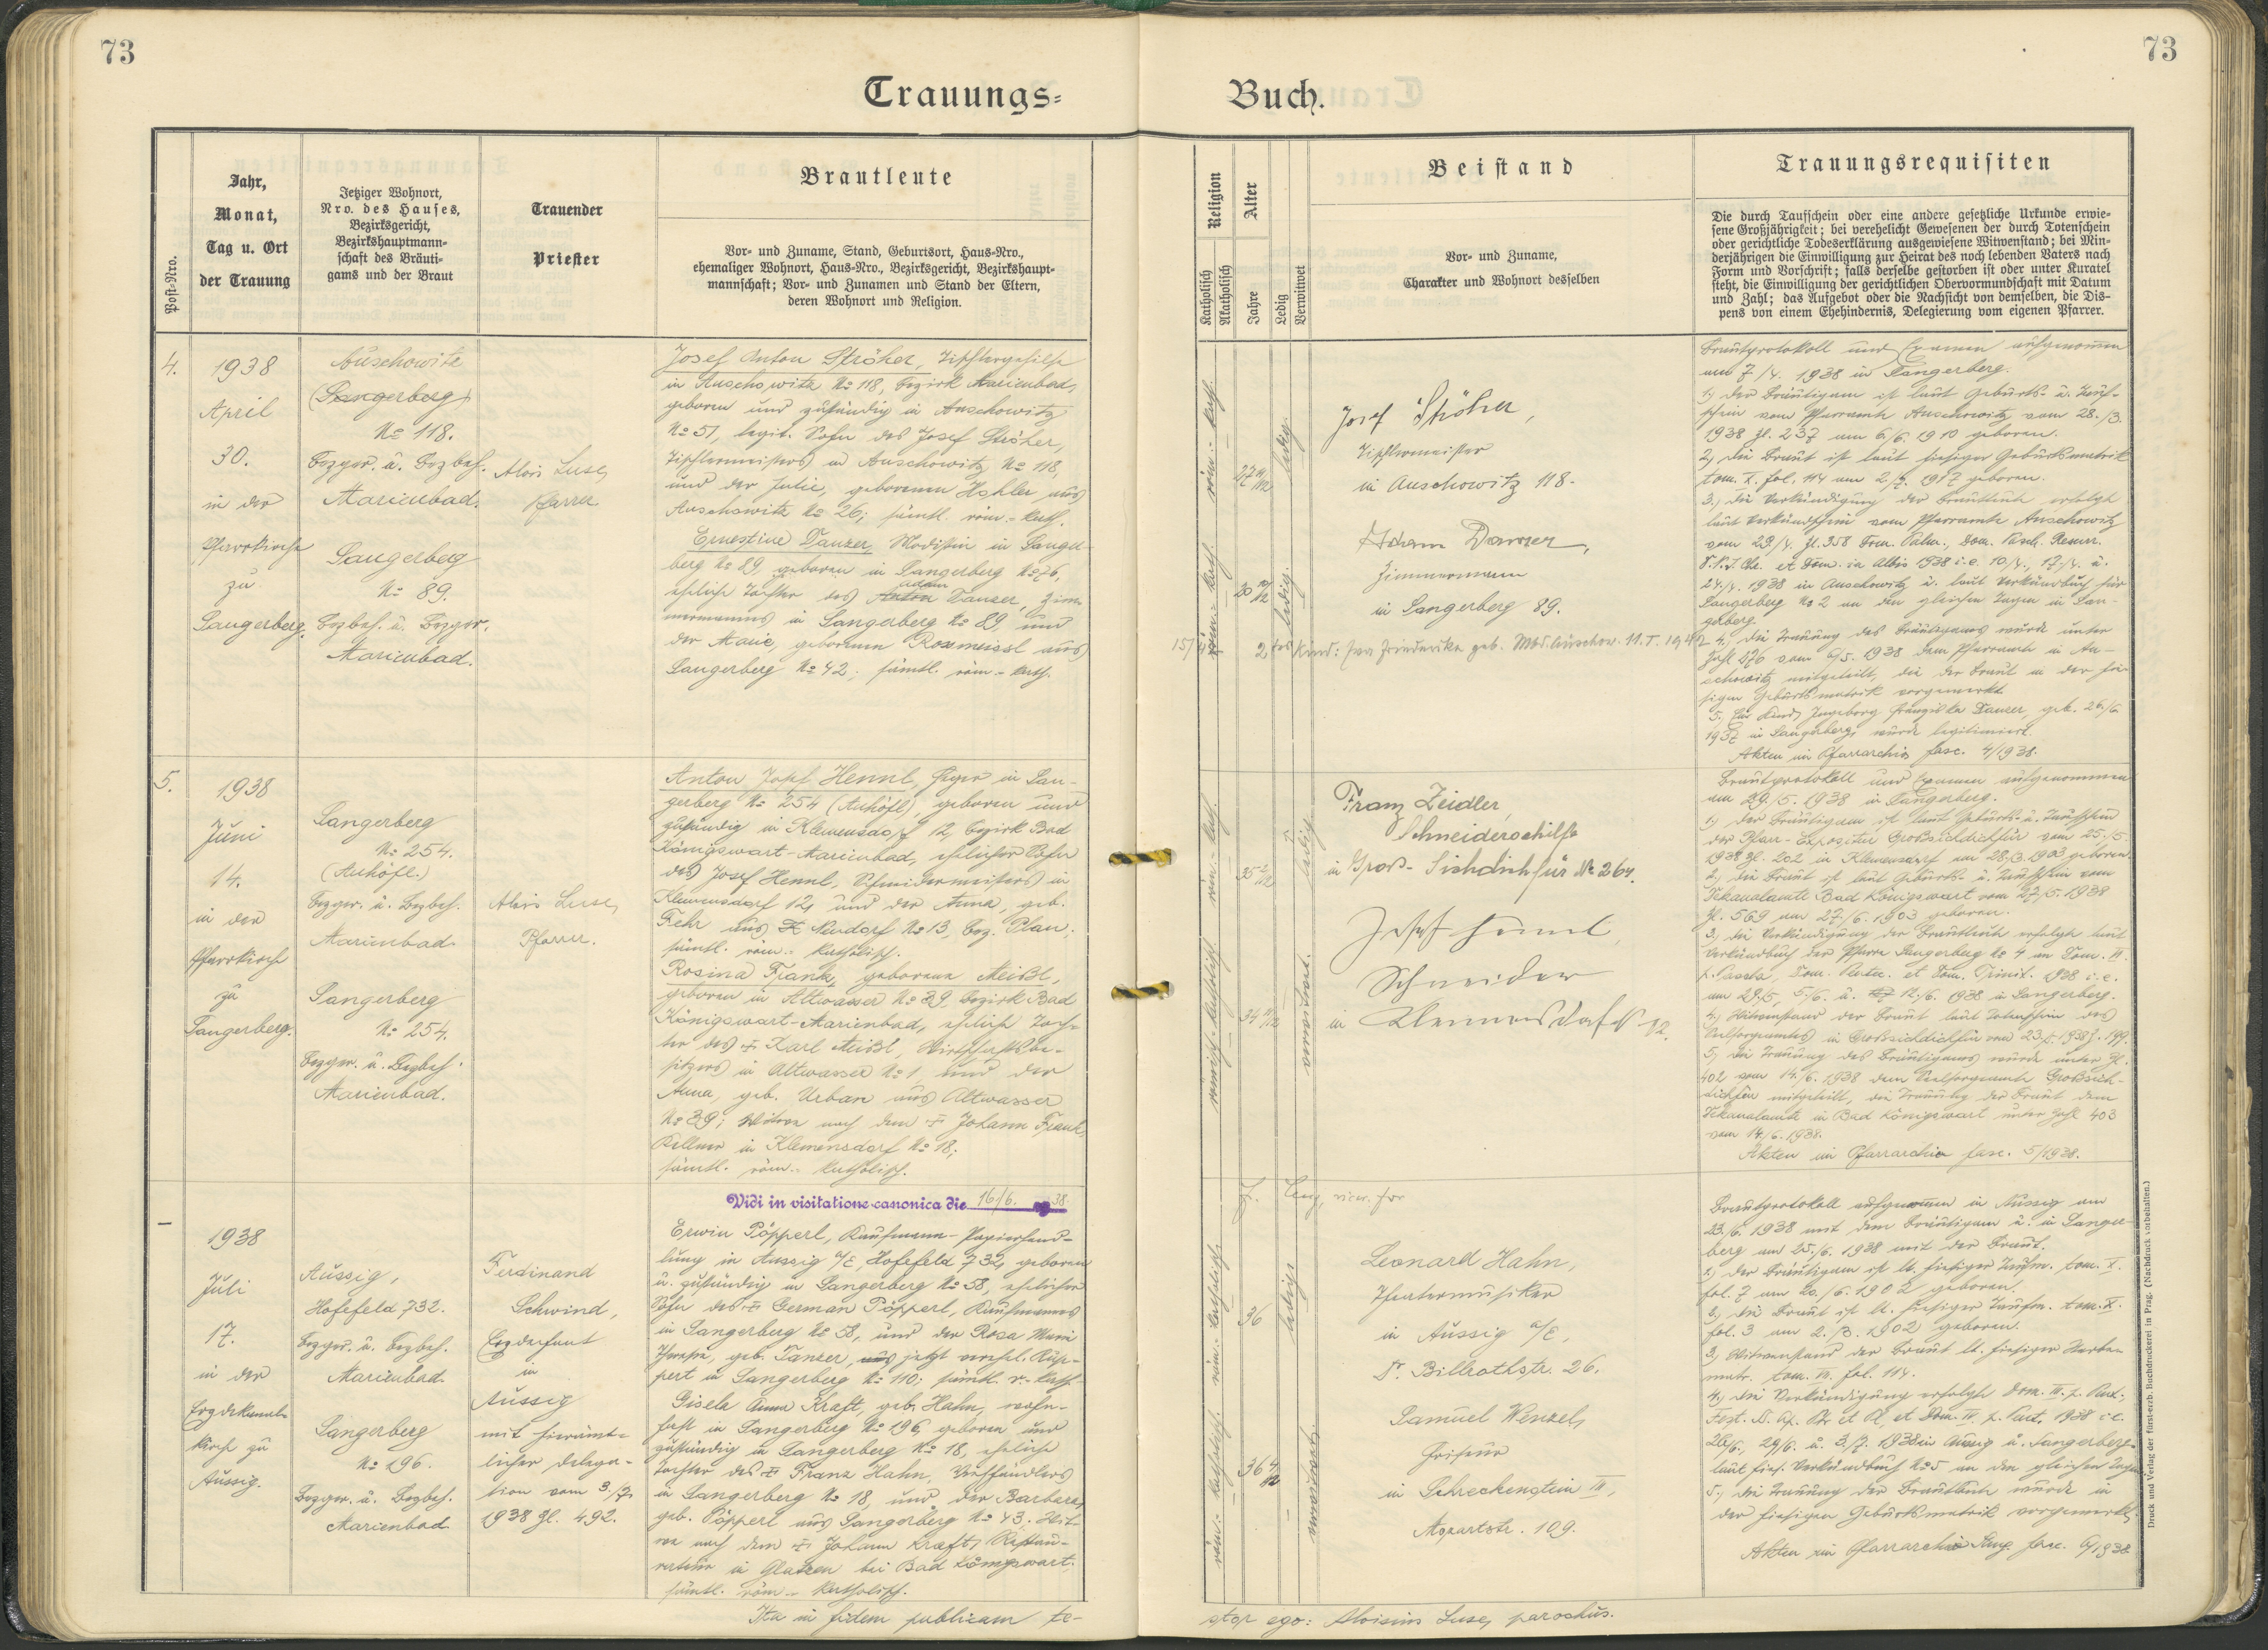 73
73
Trauungs=
Buch.
Post=Nro.
Jahr,
Monat,
Tag u. Ort
der Trauung
Jetziger Wohnort,
Nro. des Hauses,
Bezirksgericht,
Bezirkshauptmann=
schaft des Bräuti=
gams und der Braut
Trauender
Priester
Brautleute
Vor= und Zuname, Stand, Geburtsort, Haus=Nro.,
ehemaliger Wohnort, Haus=Nro., Bezirksgericht, Bezirkshaupt=
mannschaft; Vor= und Zunamen und Stand der Eltern,
deren Wohnort und Religion.
Religion
Katholisch
Akatholisch
Alter
Jahre
Ledig
Verwitwet
Beistand
Vor= und Zuname,
Charakter und Wohnort desselben
Trauungsrequisiten
Die durch Taufschein oder eine andere gesetzliche Urkunde erwie=
sene Großjährigkeit; bei verehelicht Gewesenen der durch Totenschein
oder gerichtliche Todeserklärung ausgewiesene Witwenstand; bei Min=
derjährigen die Einwilligung zur Heirat des noch lebenden Vaters nach
Form und Vorschrift; falls derselbe gestorben ist oder unter Kuratel
steht, die Einwilligung der gerichtlichen Obervormundschaft mit Datum
und Zahl; das Aufgebot oder die Nachsicht von demselben, die Dis=
pens von einem Ehehindernis, Delegierung vom eigenen Pfarrer.
4.
1938
April
30.
in der
Pfarrkirche
zu
Sangerberg.
Auschowitz
(Sangerberg)
No 118.
Bezger. u. Bezbeh.
Marienbad.
Sangerberg
No 89.
Bezbeh. u. Bezger.
Marienbad.
Alois Luse,
Pfarrer
Josef Anton Ströher, Tischlergehilfe
in Auschowitz No 118, Bezirk Marienbad,
geboren und zuständig in Auschowitz
No 51, legit. Sohn des Josef Ströher,
Tischlermeisters in Auschowitz No 118,
und der Julie, geborenen Hohler aus
Auschowitz No 26; sämtl. röm.-kath.
Ernestine Danzer, Modistin in Sanger-
berg No 89, geboren in Sangerberg No 76,
eheliche Tochter des Anton Adam Danzer, Zim-
mermanns in Sangerberg No 89 und
der Marie, geborenen Rossmeissl aus
Sangerberg No 42; sämtl. röm.-kath.
röm.- kath.
27 10/12
ledig.
röm.- kath.
20 10/12
ledig.
Josef Ströher,
Tischlermeister
in Auschowitz 118.
Adam Danzer,
Zimmermann
in Sangerberg 89.
2tes Kind: Friederike geb. Mbd. Auschow. 11. I. 1942
Brautprotokoll und Examen aufgenommen
am 7/4. 1938 in Sangerberg.
1, der Bräutigam ist laut Geburts- u. Tauf-
schein vom Pfarramte Auschowitz vom 28./3.
1938 Zl. 237 am 6/6. 1910 geboren.
2, die Braut ist laut hiesiger Geburtsmatrik
tom. X. fol. 114 am 2./7. 1917 geboren.
3, die Verkündigung der Brautleute erfolgte
laut Verkündschein vom Pfarramte Auschowitz
vom 29/4. Zl. 358 Dom. Palm., Dom. Pasch. Resurr.
D.N.J.Chr. et Dom. in Albis 1938 i.e. 10/4., 17/4. u.
24./4. 1938 in Auschowitz u. laut Verkündbuch für
Sangerberg No 2 an den gleichen Tagen in San-
gerberg.
4, die Trauung des Bräutigams wurde unter
Zahl 376 vom 6/5. 1938 dem Pfarramte in Au-
schowitz mitgeteilt, die der Braut in der hie-
sigen Geburtsmatrik vorgemerkt.
5, Ein Kind, Ingeborg Franziska Danzer, geb. 26./6.
1937 in Sangerberg, wurde legitimiert.
Akten im Pfarrarchiv fasc. 4/1938.
5.
1938
Juni
14.
in der
Pfarrkirche
zu
Sangerberg.
Sangerberg
No 254.
(Auhöfl.)
Bezger. u. Bezbeh.
Marienbad.
Sangerberg
No 254.
Bezger. u. Bezbeh.
Marienbad.
Alois Luse,
Pfarrer.
Anton Josef Hennl, Heger in San-
gerberg No 254 (Auhöfl), geboren und
zuständig in Klemensdorf 12, Bezirk Bad
Königswart-Marienbad, ehelicher Sohn
des Josef Hennl, Schneidermeisters in
Klemensdorf 12, und der Anna, geb.
Fehr aus Neudorf No 13, Bez. Plan;
sämtl. röm.- katholisch.
Rosina Frank, geborene Meißl,
geboren in Altwasser No 39, Bezirk Bad
Königswart-Marienbad, eheliche Toch-
ter des † Karl Meißl, Wirtschaftsbe-
sitzers in Altwasser No 1 und der
Anna, geb. Urban aus Altwasser
No 39; Witwe nach dem † Johann Frank,
Kellner in Klemensdorf No 18;
sämtl. röm.- katholisch.
röm.- kath.
35 2/12
ledig
römisch-katholisch.
34 11/12
verwitwet.
Franz Zeidler,
Schneidergehilfe
in Groß-Sichdichfür No 264.
Josef Hennl
Schneider
in Klemensdorf 12.
Brautprotokoll und Examen aufgenommen
am 29./5. 1938 in Sangerberg.
1, der Bräutigam ist laut Geburts- u. Taufschein
der Pfarr-Expositur Großsichdichfür vom 25./5.
1938 Zl. 202 in Klemensdorf am 28./3. 1903 geboren.
2, die Braut ist laut Geburts- u. Taufschein vom
Dekanalamte Bad Königswart vom 27./5. 1938
Zl. 569 am 27/6. 1903 geboren.
3, die Verkündigung der Brautleute erfolgte laut
Verkündbuch der Pfarre Sangerberg No 4 an Dom. VI.
p. Pascha, Dom. Pentec. et Dom. Trinit. 1938 i.e.
am 29./5, 5./6. u. 12./6. 1938 in Sangerberg.
4, Witwenstand der Braut laut Totenschein des
Seelsorgeamtes in Großsichdichfür vom 23./5. 1938 Z. 199.
5, die Trauung des Bräutigams wurde unter Zl.
402 vom 14./6. 1938 dem Seelsorgeamte Großsich-
dichfür mitgeteilt, die Trauung der Braut dem
Dekanalamte in Bad Königswart unter Zahl 403
vom 14./6. 1938.
Akten im Pfarrarchiv fasc. 5/1938.
Vidi in visitatione canonica die 16/6. 38
1938
Juli
17.
in der
Erzdekanal-
kirche zu
Aussig.
Aussig,
Hofefeld 732.
Bezger. u. Bezbeh.
Marienbad.
Sangerberg
No 196.
Bezger. u. Bezbeh.
Marienbad
Ferdinand
Schwind,
Erzdechant
in
Aussig
mit hierämt-
licher Delega-
tion vom 3./7.
1938 Zl. 492.
Erwin Pöpperl, Kaufmann-Papierhand-
lung in Aussig a/E, Hofefeld 732, geboren
u. zuständig in Sangerberg No 58, ehelicher
Sohn des † German Pöpperl, Kaufmannes
in Sangerberg No 58, und der Rosa Maria
Theresia, geb. Danzer, jetzt verehel. Rup-
pert in Sangerberg No 110; sämtl. r.-kath.
Gisela Anna Kraft, geb. Hahn, wohn-
haft in Sangerberg No 196, geboren und
zuständig in Sangerberg No 18, eheliche
Tochter des † Franz Hahn, Viehhändlers
in Sangerberg No 18, und der Barbara,
geb. Pöpperl aus Sangerberg No 43. Wit-
we nach dem † Johann Kraft, Restau-
rateur in Glatzen bei Bad Königswart;
sämtl. röm.- katholisch.
röm.- katholisch
36
ledig
röm.- katholisch.
36 4/12
verwitwet.
Leonard Hahn,
Theatermusiker
in Aussig a/E,
Dr. Billrothstr. 26.
Samuel Wenzel,
Friseur
in Schreckenstein III,
Mozartstr. 109.
Brautprotokoll aufgenommen in Aussig am
23./6. 1938 mit dem Bräutigam u. in Sanger-
berg am 25./6. 1938 mit der Braut.
1, Der Bräutigam ist lt. hiesiger Taufm. tom. X.
fol. 7 am 20./6. 1902 geboren.
2, die Braut ist lt. hiesiger Taufm. tom. X.
fol. 3 am 2./3. 1902 geboren.
3, Witwenstand der Braut lt. hiesiger Sterbe-
matr. tom. VII. fol. 114.
4, die Verkündigung erfolgte Dom. III. p. Pent.,
Fest. SS. Ap. Petr. et P. et Dom. IV. p. Pent. 1938 i.e.
26/6., 29/6. u. 3./7. 1938 in Aussig u. Sangerberg
laut hies. Verkündbuch No 5 an den gleichen Tagen
5, die Trauung der Brautleute wurde in
der hiesigen Geburtsmatrik vorgemerkt.
Akten im Pfarrarchiv Sang. fasc. 6/1938
Ita in fidem publicam te-
stor ego: Aloisius Luse, parochus.
Druck und Verlag der fürst-erzb. Buchdruckerei in Prag. (Nachdruck vorbehalten.)